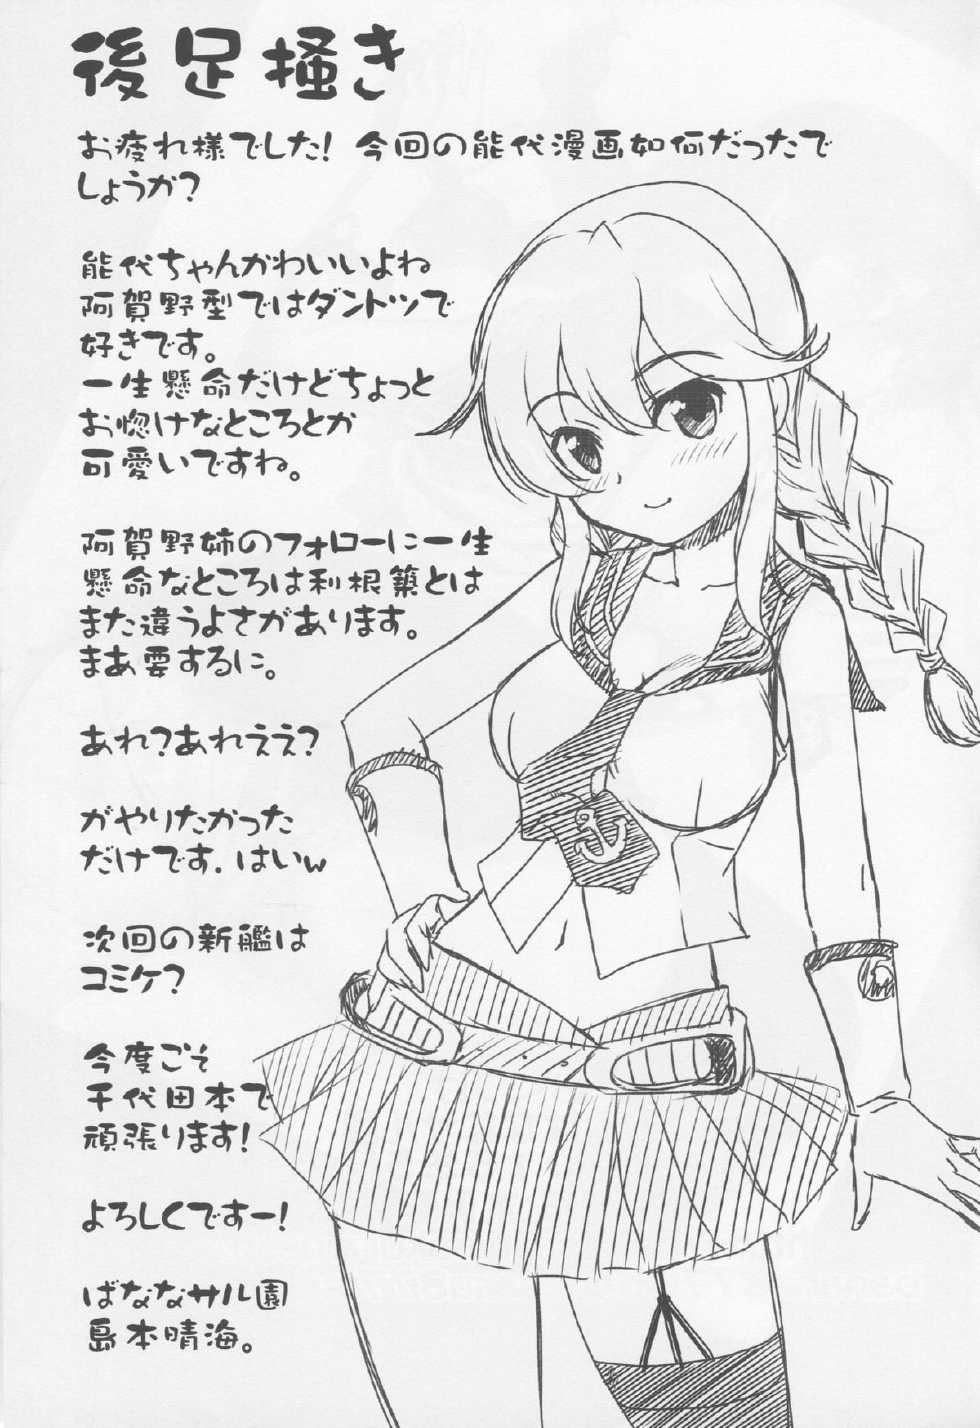 後足掻き
お疲れ様でした！ 今回の能代漫画如何だったで
しょうか？
能代ちゃんかわいいよね
阿賀野型ではダントツで
好きです。
一生懸命だけどちょっと
お惚けなところとか
可愛いですね。
阿賀野姉のフォローに一生
懸命なところは利根築とは
また違うよさがあります。
まあ要するに。
あれ？あれええ？
がやりたかった
だけです．はいｗ
次回の新艦は
コミケ？
今度こそ
千代田本で
頑張ります！
よろしくですー！
ばななサル園
島本晴海。